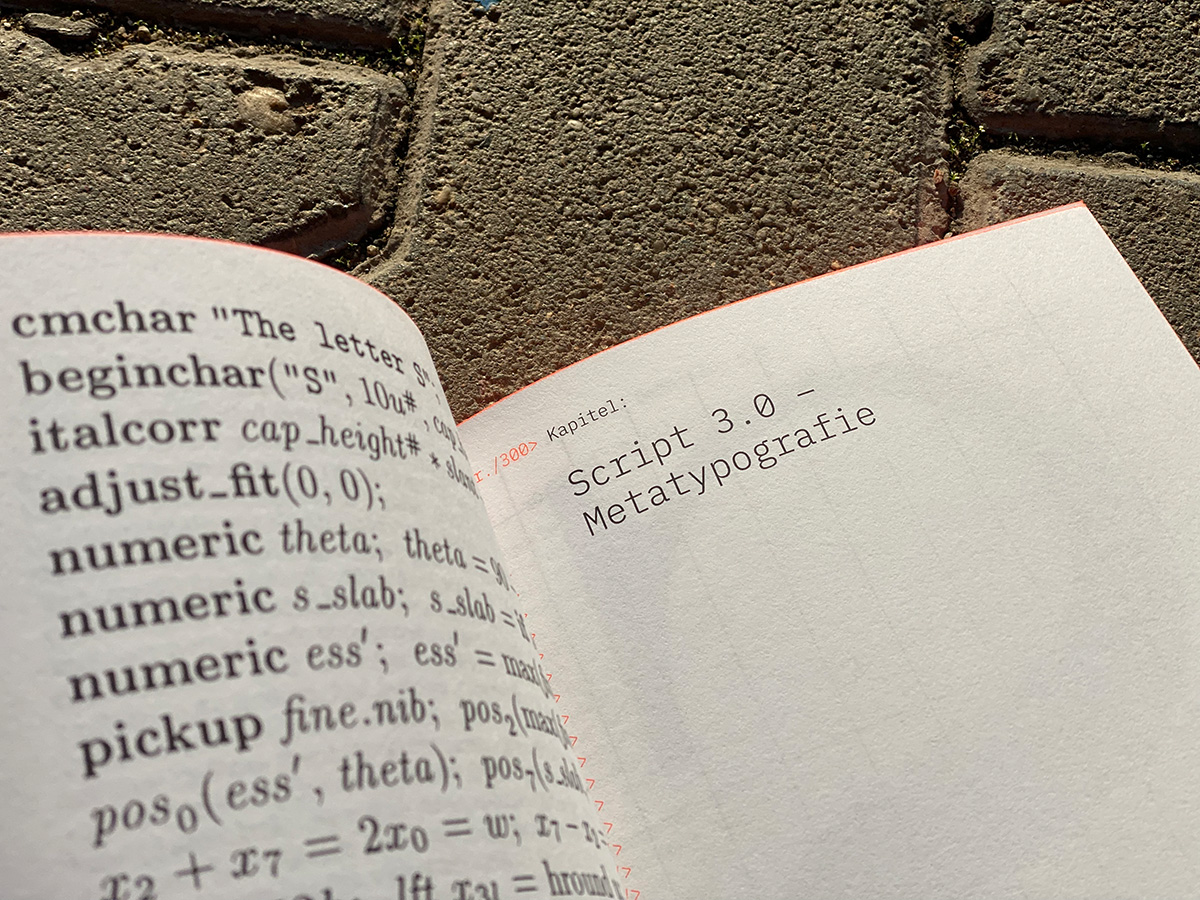 cmchar "The letter S".
beginchar("S", 10u#, cap_
italcorr cap_height# * slant
adjust_fit(0, 0);
numeric theta; theta = 90 -
numeric s_slab; s_slab = if
numeric ess'; ess' = max(
pickup fine.nib; pos2(max(
pos0(ess', theta); pos7(s_slab
x2 + x7 = 2x0 = w; x7 -
lft x3l = hround
r./300> Kapitel:
Script 3.0 –
Metatypografie